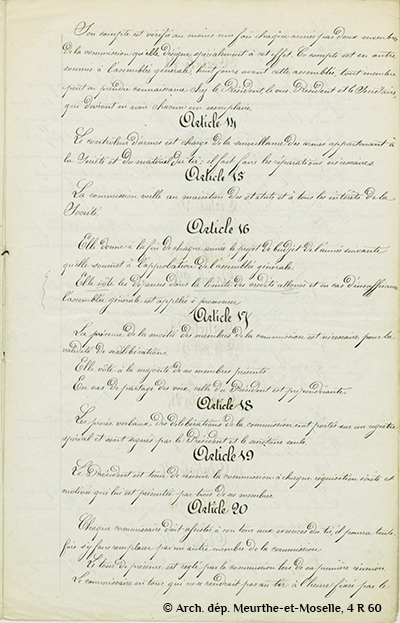 Son compte est vérifié au moins une fois chaque année par deux membres
de la commission qu'elle désigne spécialement à cet effet. Ce compte est en outre
soumis à l'assemblée générale, huit jours avant cette assemblée tout membre
peut en prendre connaissance chez le Président le vice Président et le Secrétaire,
qui doivent en avoir chacun un exemplaire
Article 14
Le contrôleur d'armes est chargé de la surveillance des armes appartenant à
la Société et du matériel du tir; il fait faire les réparations nécessaires
Article 15
La commission veille au maintien des statuts et à tous les intérêts de la
Société
Article 16
Elle donne à la fin de chaque année le projet de budget de l'année suivante
qu'elle soumet à l'approbation de l'assemblée générale.
Elle vote les dépenses dans la limite des crédits alloués et en cas d'insuffisance
l'assemblée générale est appelée à prononcer
Article 17
La présence de la moitié des membres de la commission est nécessaire pour la
validité de ses délibérations.
Elle vote à la majorité de ses membres présents
En cas de partage des voix, celle du Président est prépondérante.
Article 18
Les procès verbaux des délibérations de la commission sont portés sur un registre
spécial et sont signés par le Président et le secrétaire seuls
Article 19
Le Président est tenu de réunir la commission à chaque réquisition écrite et
motivée qui lui est présentée par trois de ses membres
Article 20
Chaque commissaire doit assister à son tour aux exercices du tir, il pourra toute
fois s'y faire remplacer par un autre membre de la commission
Le tour de présence est réglé par la commission lors de sa première réunion
Le commissaire en tour qui ne se rendrait pas au tir à l'heure fixée par le
© Arch. dép. Meurthe-et-Moselle, 4 R 60